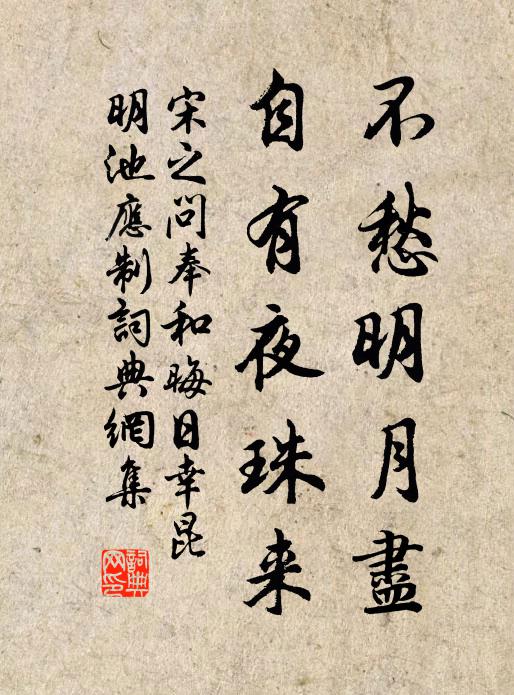 不愁明月盡
自有夜珠来
宋之问奉和晦日幸昆
明池應制詞典網集
詞典
网印